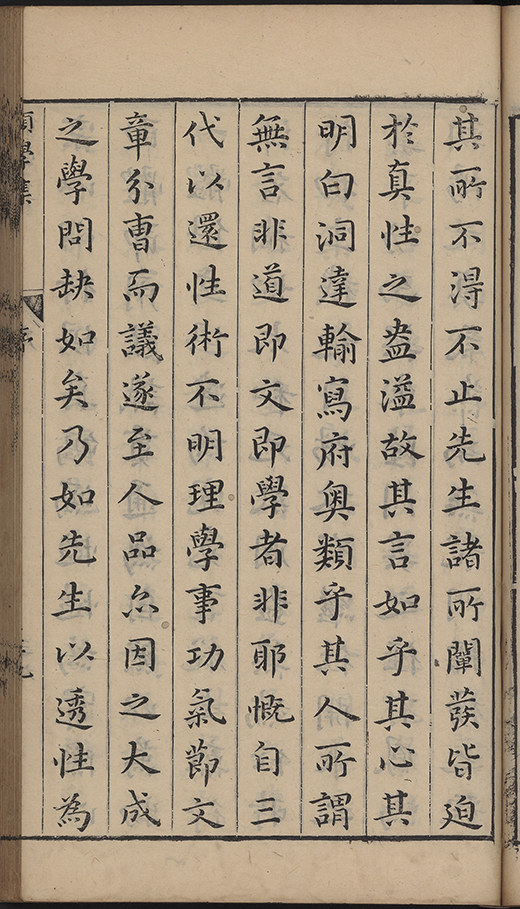 其所不得不止先生諸所闡發皆迫
於真性之盎溢故其言如乎其心其
明白洞達輸寫府奧類乎其人所謂
無言非道即文即學者非耶慨自三
代以還性術不明理學事功氣節文
章分曹而議遂至人品亦因之大成
之學問缺如矣乃如先生以透性為
序